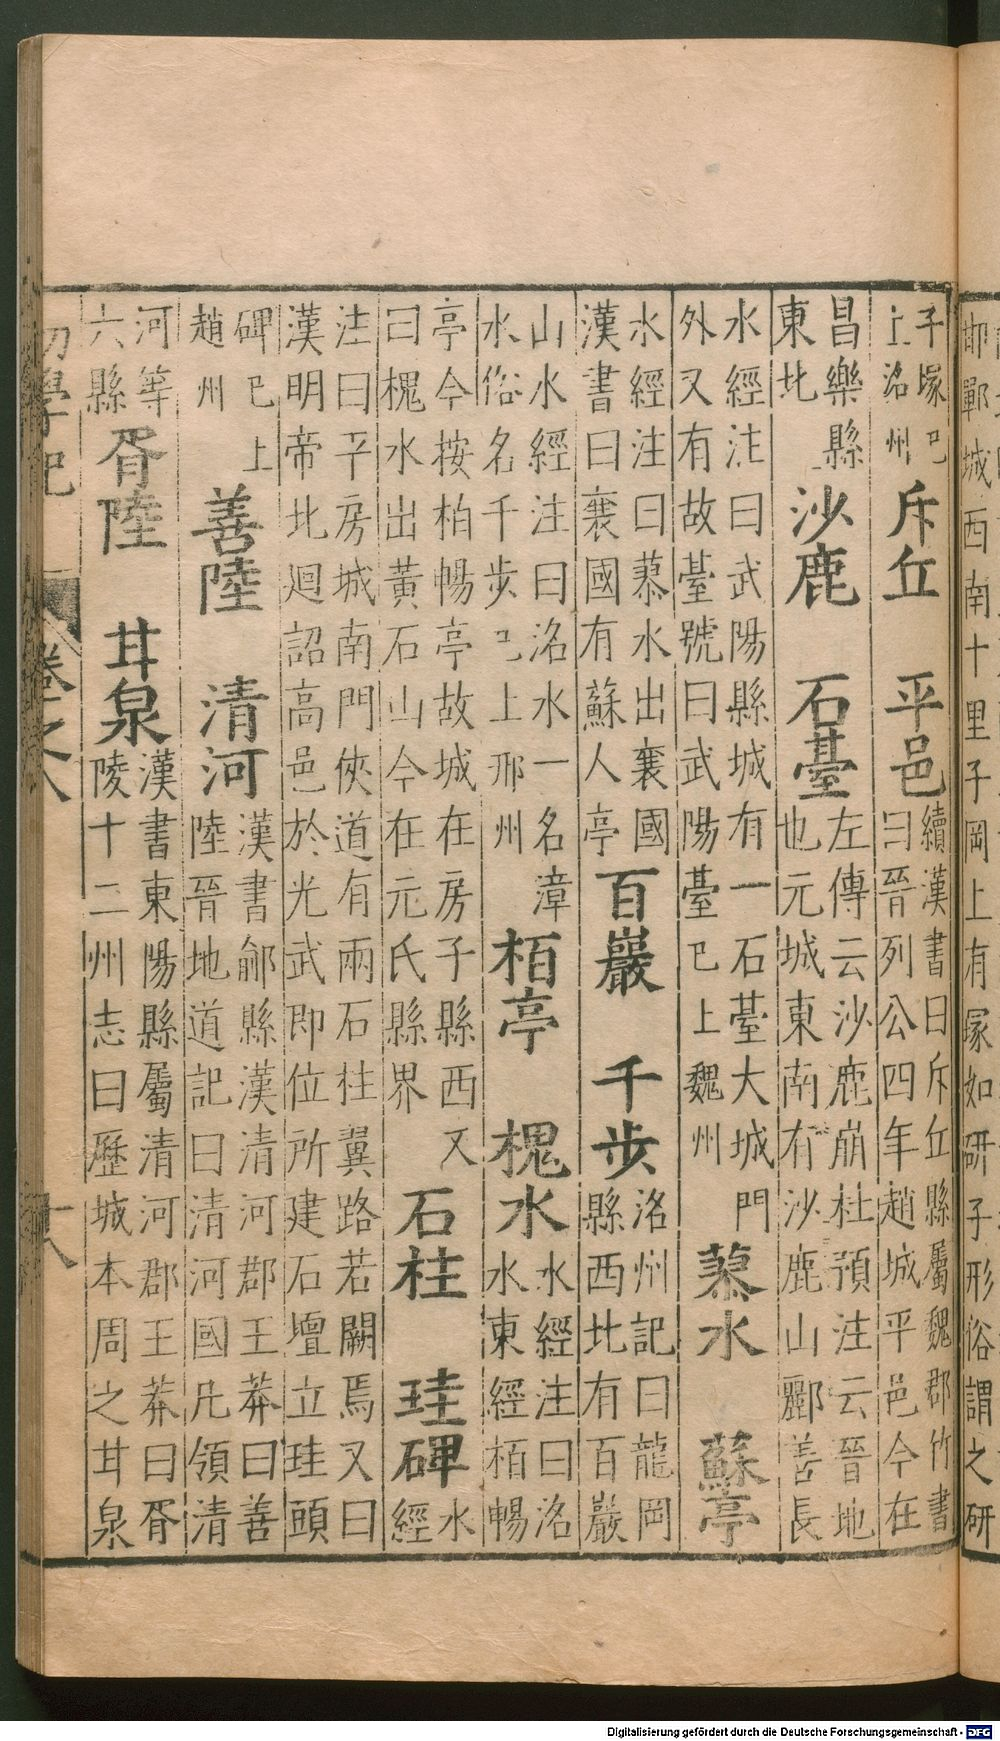 邯鄲城西南十里子岡上有冢如研子形俗謂之研
子塚已上洺州 斥丘 平邑 續漢書曰斥丘縣屬魏郡竹書曰晉列公四年趙城平邑今在
昌樂縣東北 沙鹿 石臺 左傳云沙鹿崩杜預注云晉地也元城東南有沙鹿山酈善長
水經注曰武陽縣城有一石臺大城門外又有故臺號曰武陽臺已上魏州 蓦水 蘇亭
水經注曰蓦水出襄國漢書曰襄國有蘇人亭 百巖 千步 洺州記曰龍岡縣西北有百巖
山水經注曰洺水一名漳水俗名千步已上邢州 栢亭 槐水 水經注曰洺水東經栢暢
亭今按柏暢亭故城在房子縣西又曰槐水出黃石山今在元氏縣界 石柱 珪碑 水經
注曰平房城南門俠道有兩石柱翼路若闕焉又曰漢明帝北廻詔高邑於光武即位所建石壇立珪頭
碑已上趙州 善陸 清河 漢書鄃縣漢清河郡王莽曰善陸晉地道記曰清河國凡領清
河等六縣 胥陸 甘泉 漢書東陽縣屬清河郡王莽曰胥陵十二州志曰歷城本周之甘泉
初學記 卷之八 十八
Digitalisierung gefördert durch die Deutsche Forschungsgemeinschaft - DFG